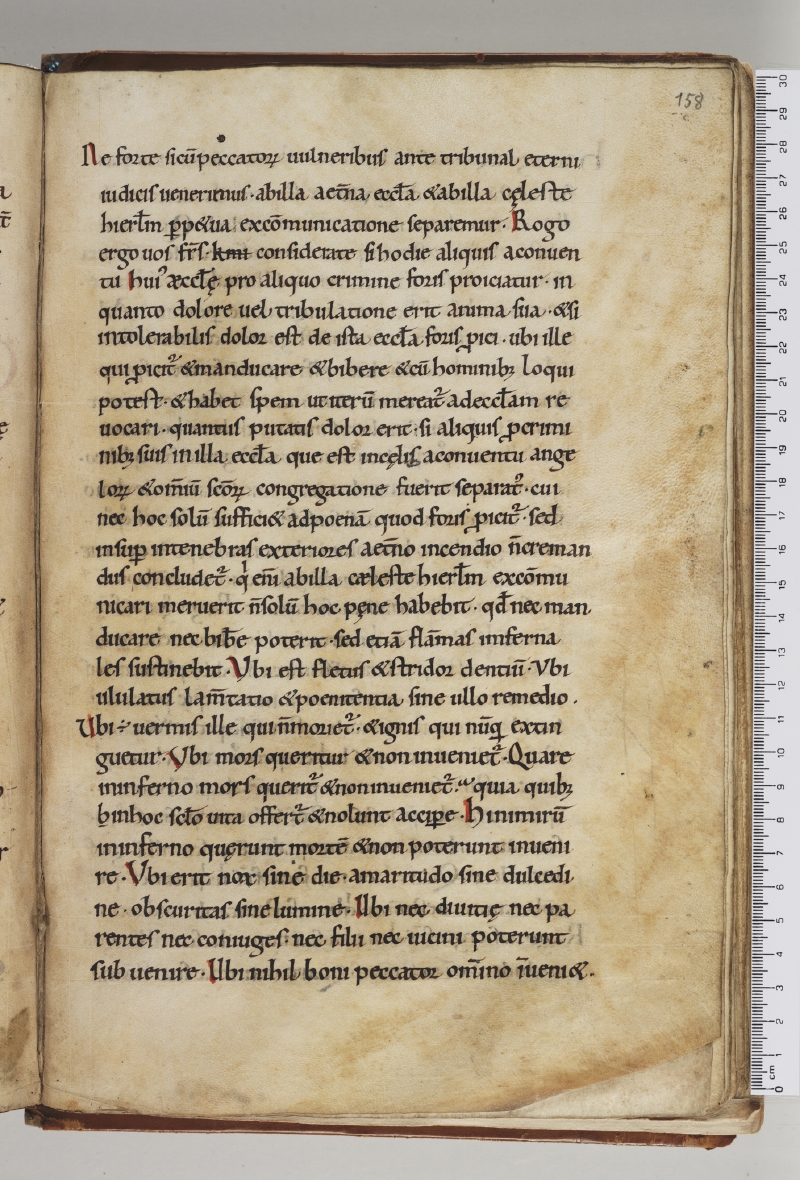 158
Ne forte sicū peccatoꝝ uulneribus ante tribunal eterni
iudicis uenerimus · abilla aet̄na eccła &abilla cęleste
hierłm ꝑp&ua excōmunicatione separemur · Rogo
ergo uos fr̄s · kmi considerate si hodie aliquis aconuen
tu huiꝰ æccłę pro aliquo crimine foris proiciatur · in
quanto dolore uel tribulatione erit anima sua · &si
intolerabilis dolor est de ista eccła foris ꝓici · ubi ille
qui ꝓicit᷑ &manducare &bibere &cū hominibꝫ loqui
potest · &habet spem ut iterū mereat᷑ adeccłam re
uocari · quantus putatis dolor erit · si aliquis ꝓcrimi
nibꝫ suis in illa eccła que est incęlis aconuentu ange
loꝝ &omīu sc̄oꝝ congregatione fuerit separatꝰ · cui
nec hoc solū suffici& adpoenā quod foris ꝓicit᷑ · sed
insuꝑ intenebras exteriores aet̄no incendio n̄creman
dus concludet᷑ · qͥ eni᷑ abilla cæleste hierłm excōmu
nicari meruerit n̄solū hoc pęne habebit · qđ nec man
ducare nec bibe᷑ poterit · sed etiā flāmas inferna
les sustinebit · Vbi est fletus &stridor dentiū · Vbi
ululatus lam̄tatio &poenitentia sine ullo remedio ·
Ubi ÷ uermis ille qui n̄moriet᷑ · &ignis qui nūqꝫ extin
guetur · Vbi mors queritur &non inueniet᷑ · Quare
ininferno mors querit᷑ &noninueniet᷑ · quia quibꝫ
hinhoc scło uita offert᷑ &nolunt acciꝑe · Hi nimirū
ininferno quęrunt mortē &non poterunt inueni
re · Vbi erit nox sine die · amaritudo sine dulcedi
ne · obscuritas sine lumine · Ubi nec diuitię nec pa
rentes nec coniuges · nec filii nec uicini poterunt
sub uenire · Ubi nihil boni peccator om̄ino īueni& ·
30
29
28
27
26
25
24
23
22
21
20
19
18
17
16
15
14
13
12
11
10
9
8
7
6
5
4
3
2
1
cm
0